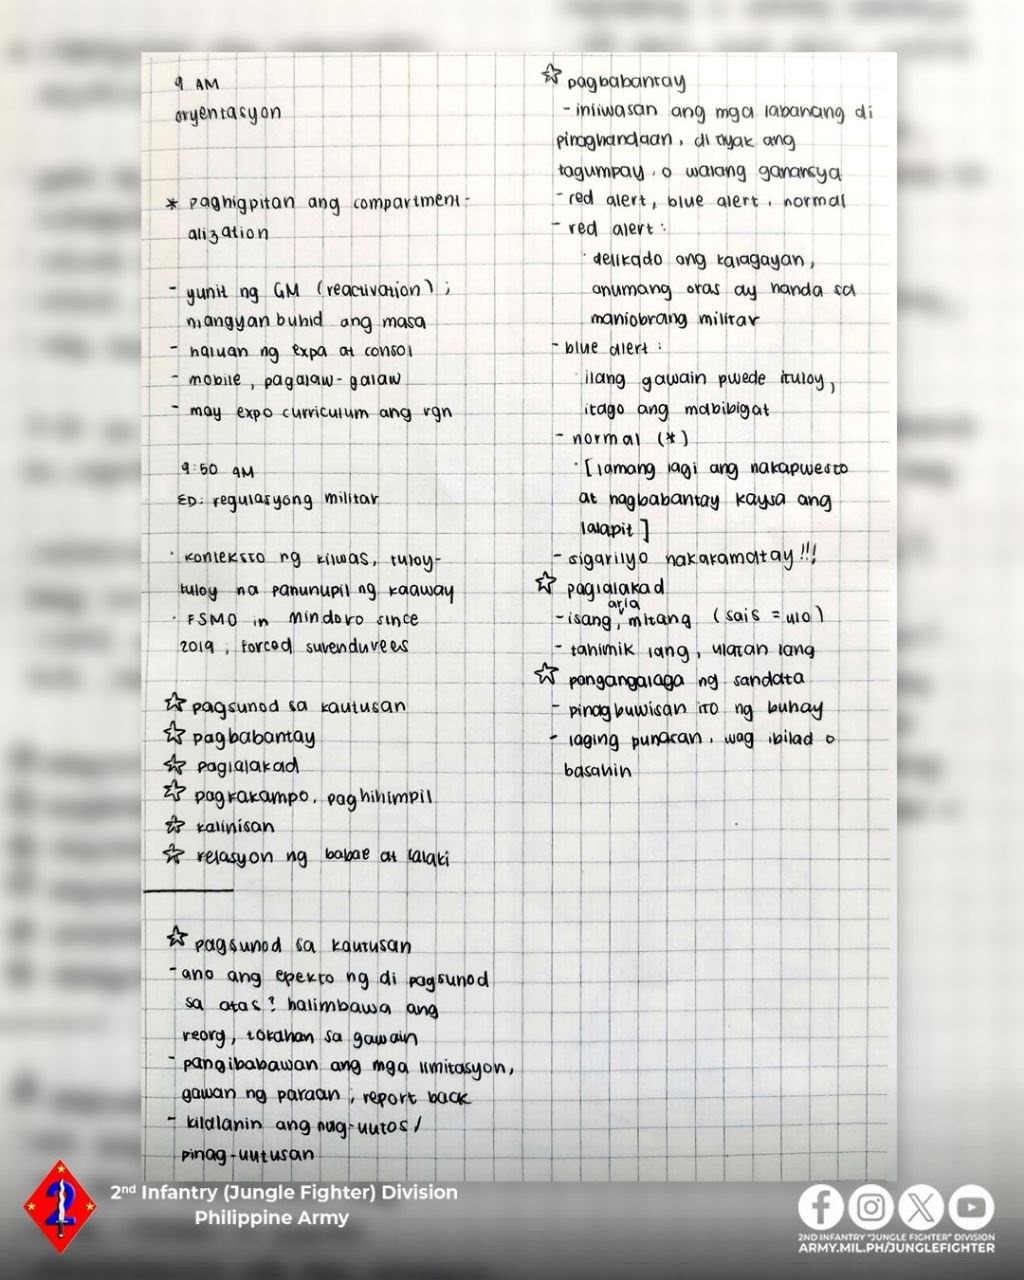 9 AM
oryentasyon
* paghigpitan ang compartment-
alization
- yunit ng GM (reactivation) ;
mangyan buhid ang masa
- haluan ng expa at consol
- mobile, pagalaw-galaw
- may expo curriculum ang rgn
9:50 AM
ED: regulasyong militar
· konteksto ng kilwas, tuloy-
tuloy na panunupil ng kaaway
· FSMO in Mindoro since
2019, forced surrenderees
☆ pagsunod sa kautusan
☆ pagbabantay
☆ paglalakad
☆ pagkakampo, paghihimpil
☆ kalinisan
☆ relasyon ng babae at lalaki
☆ pagsunod sa kautusan
- ano ang epekto ng di pagsunod
sa atas? halimbawa ang
reorg, tokahan sa gawain
- pangibabawan ang mga limitasyon,
gawan ng paraan ; report back
- kilalanin ang nag-uutos /
pinag-uutusan
☆ pagbabantay
- iniiwasan ang mga labanang di
pinaghandaan, di tiyak ang
tagumpay, o walang ganansya
- red alert, blue alert, normal
- red alert :
· delikado ang kalagayan,
anumang oras ay handa sa
maniobrang militar
- blue alert :
· ilang gawain pwede ituloy,
itago ang mabibigat
- normal (*)
· [lamang lagi ang nakapwesto
at nagbabantay kaysa ang
lalapit]
- sigarilyo nakakamatay!!!
☆ paglalakad
aria
- isang, mitang (sais = ulo)
- tahimik lang, ulatan lang
☆ pangangalaga ng sandata
- pinagbuwisan ito ng buhay
- laging punasan, wag ibilad o
basahin
2nd Infantry (Jungle Fighter) Division
Philippine Army
2ND INFANTRY "JUNGLE FIGHTER" DIVISION
ARMY.MIL.PH/JUNGLEFIGHTER